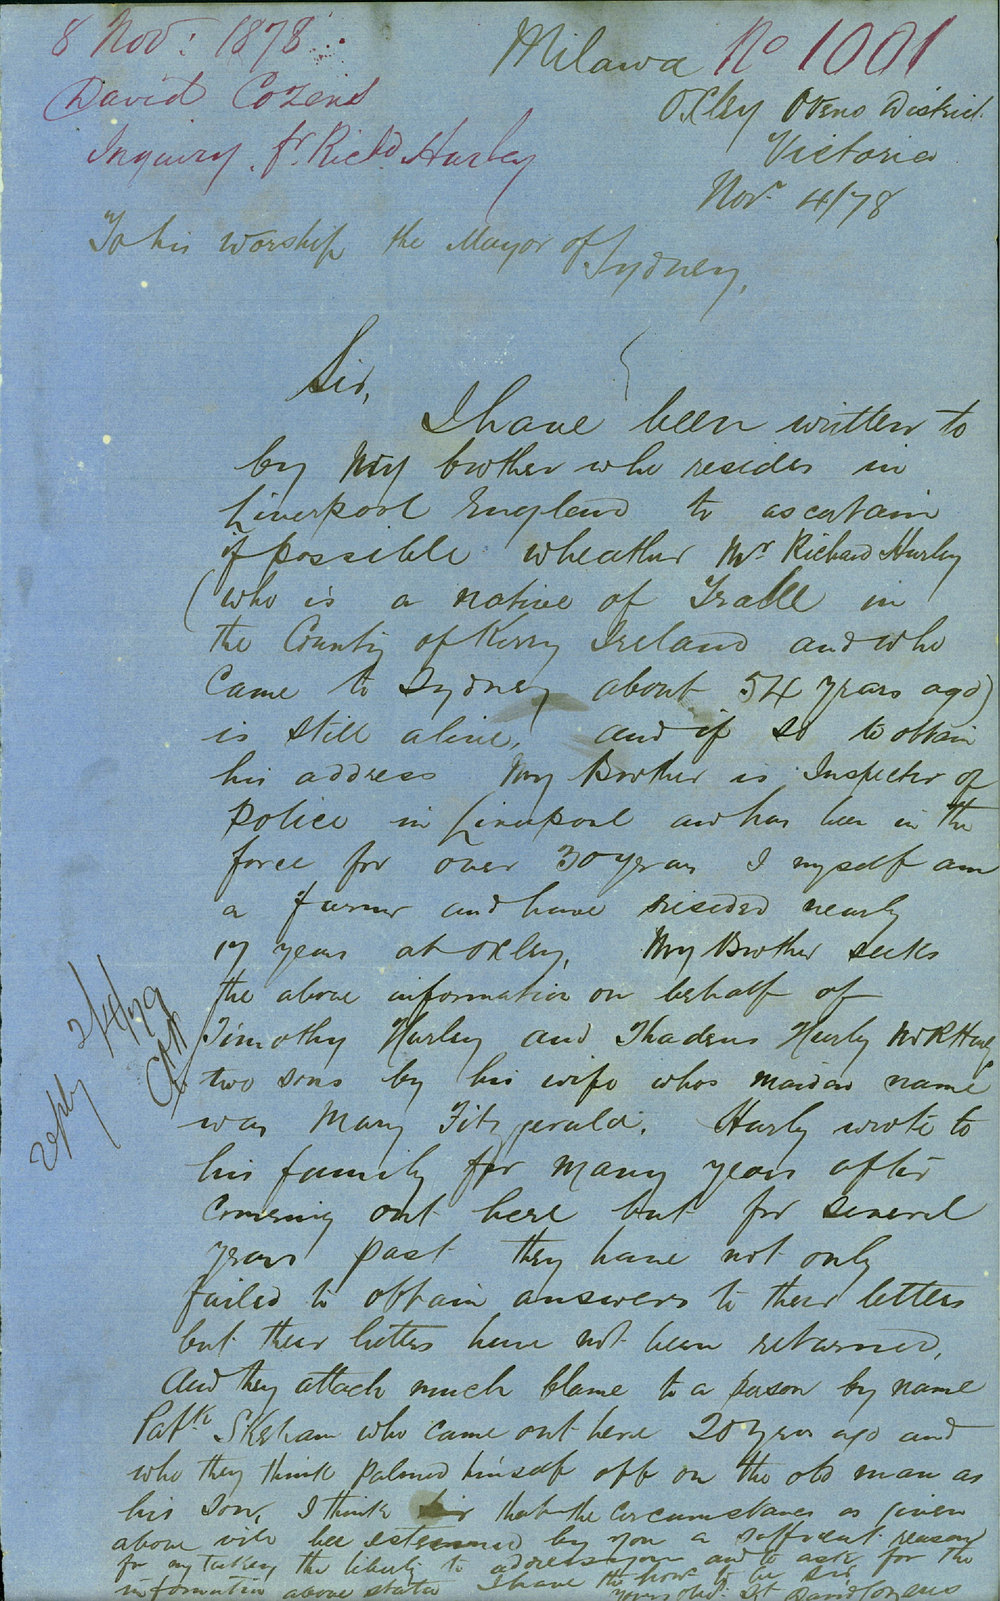 8 Nov: 1878
David Cozens
Inquiry fr. Richd. Hurley
No 1001
Milawa
Oxley Ovens District
Victoria
Novr 4/78
To his worship the Mayor of Sydney,
Sir,
I have been written to
by my brother who resides in
Liverpool England to ascertain
if possible wheather Mr Richard Hurley
(who is a native of Tralle in
the County of Kerry Ireland and who
Came to Sydney about 54 years ago)
is still alive, and if so to obtain
his address My Brother is Inspector of
Police in Liverpool and has been in the
force for over 30 years I myself am
a farmer and have resided nearly
17 years at Oxley. My Brother seeks
the above information on behalf of
Timothy Hurley and Thadeus Hurley Mr R Hurley
two sons by his wife whos maiden name
was Mary Fitzgerald. Hurly wrote to
his family for many years after
Comeing out here but for several
years past they have not only
failed to obtain answers to their letters
but their letters have not been returned,
And they attach much blame to a person by name
Patk Skeham who came out here 20 years ago and
who they think palmed himself off on the old man as
his son, I think that the Circumstances as given
above will bee esteemed by you a sufficent reason
for my takeing the liberty to address you and to ask for the
information above stated I have the honr to be Sir,
yours obdt. St David Cozens
reply 2/4/79